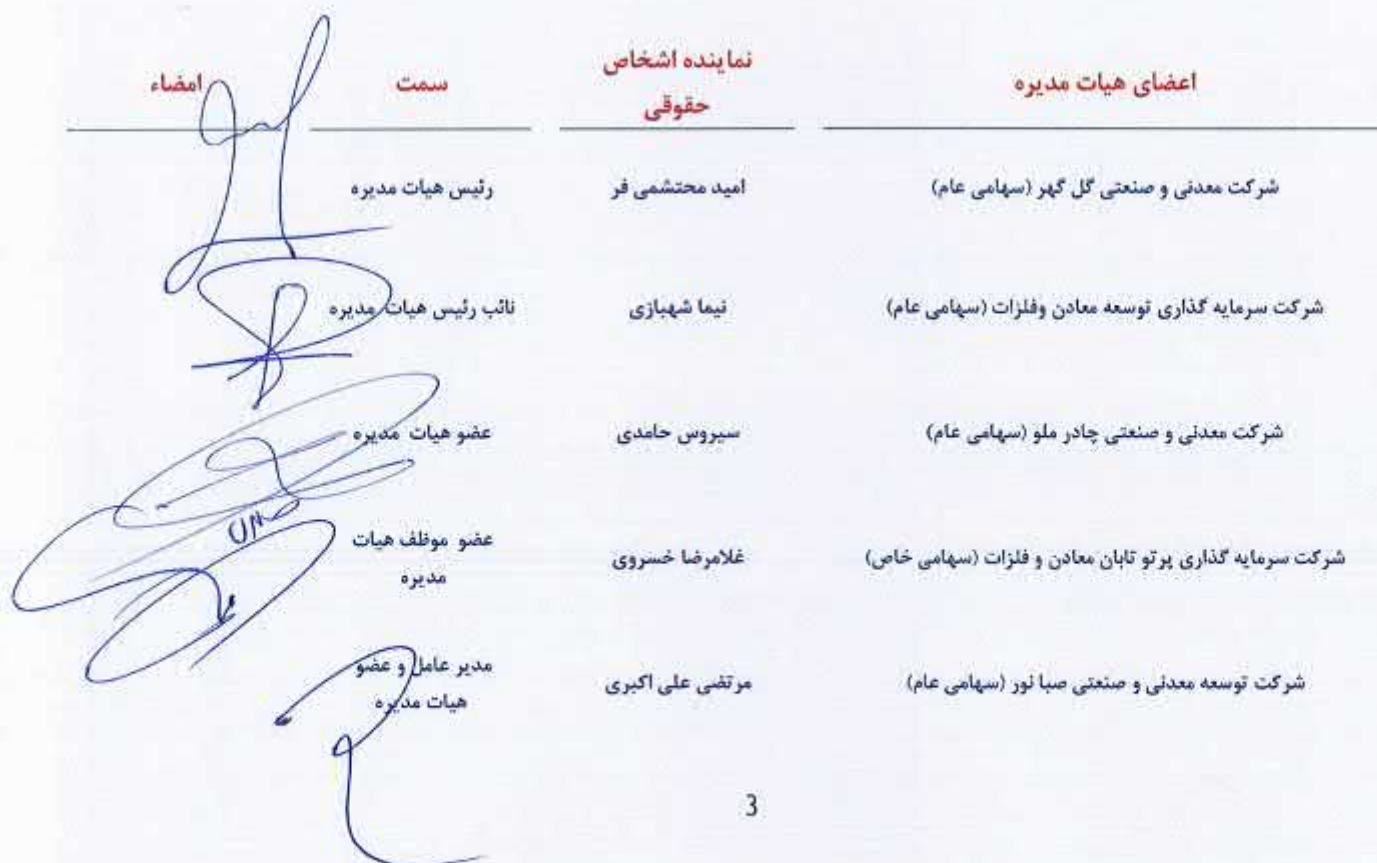 اعضای هیات مدیره
نماینده اشخاص
حقوقی
سمت
امضاء
شرکت معدنی و صنعتی گل گهر (سهامی عام)
امید محتشمی فر
رئیس هیات مدیره
شرکت سرمایه گذاری توسعه معادن وفلزات (سهامی عام)
نیما شهبازی
نائب رئیس هیات مدیره
شرکت معدنی و صنعتی چادر ملو (سهامی عام)
سیروس حامدی
عضو هیات مدیره
شرکت سرمایه گذاری پرتو تابان معادن و فلزات (سهامی خاص)
غلامرضا خسروی
عضو موظف هیات
مدیره
شرکت توسعه معدنی و صنعتی صبا نور (سهامی عام)
مرتضی علی اکبری
مدیر عامل و عضو
هیات مدیره
3